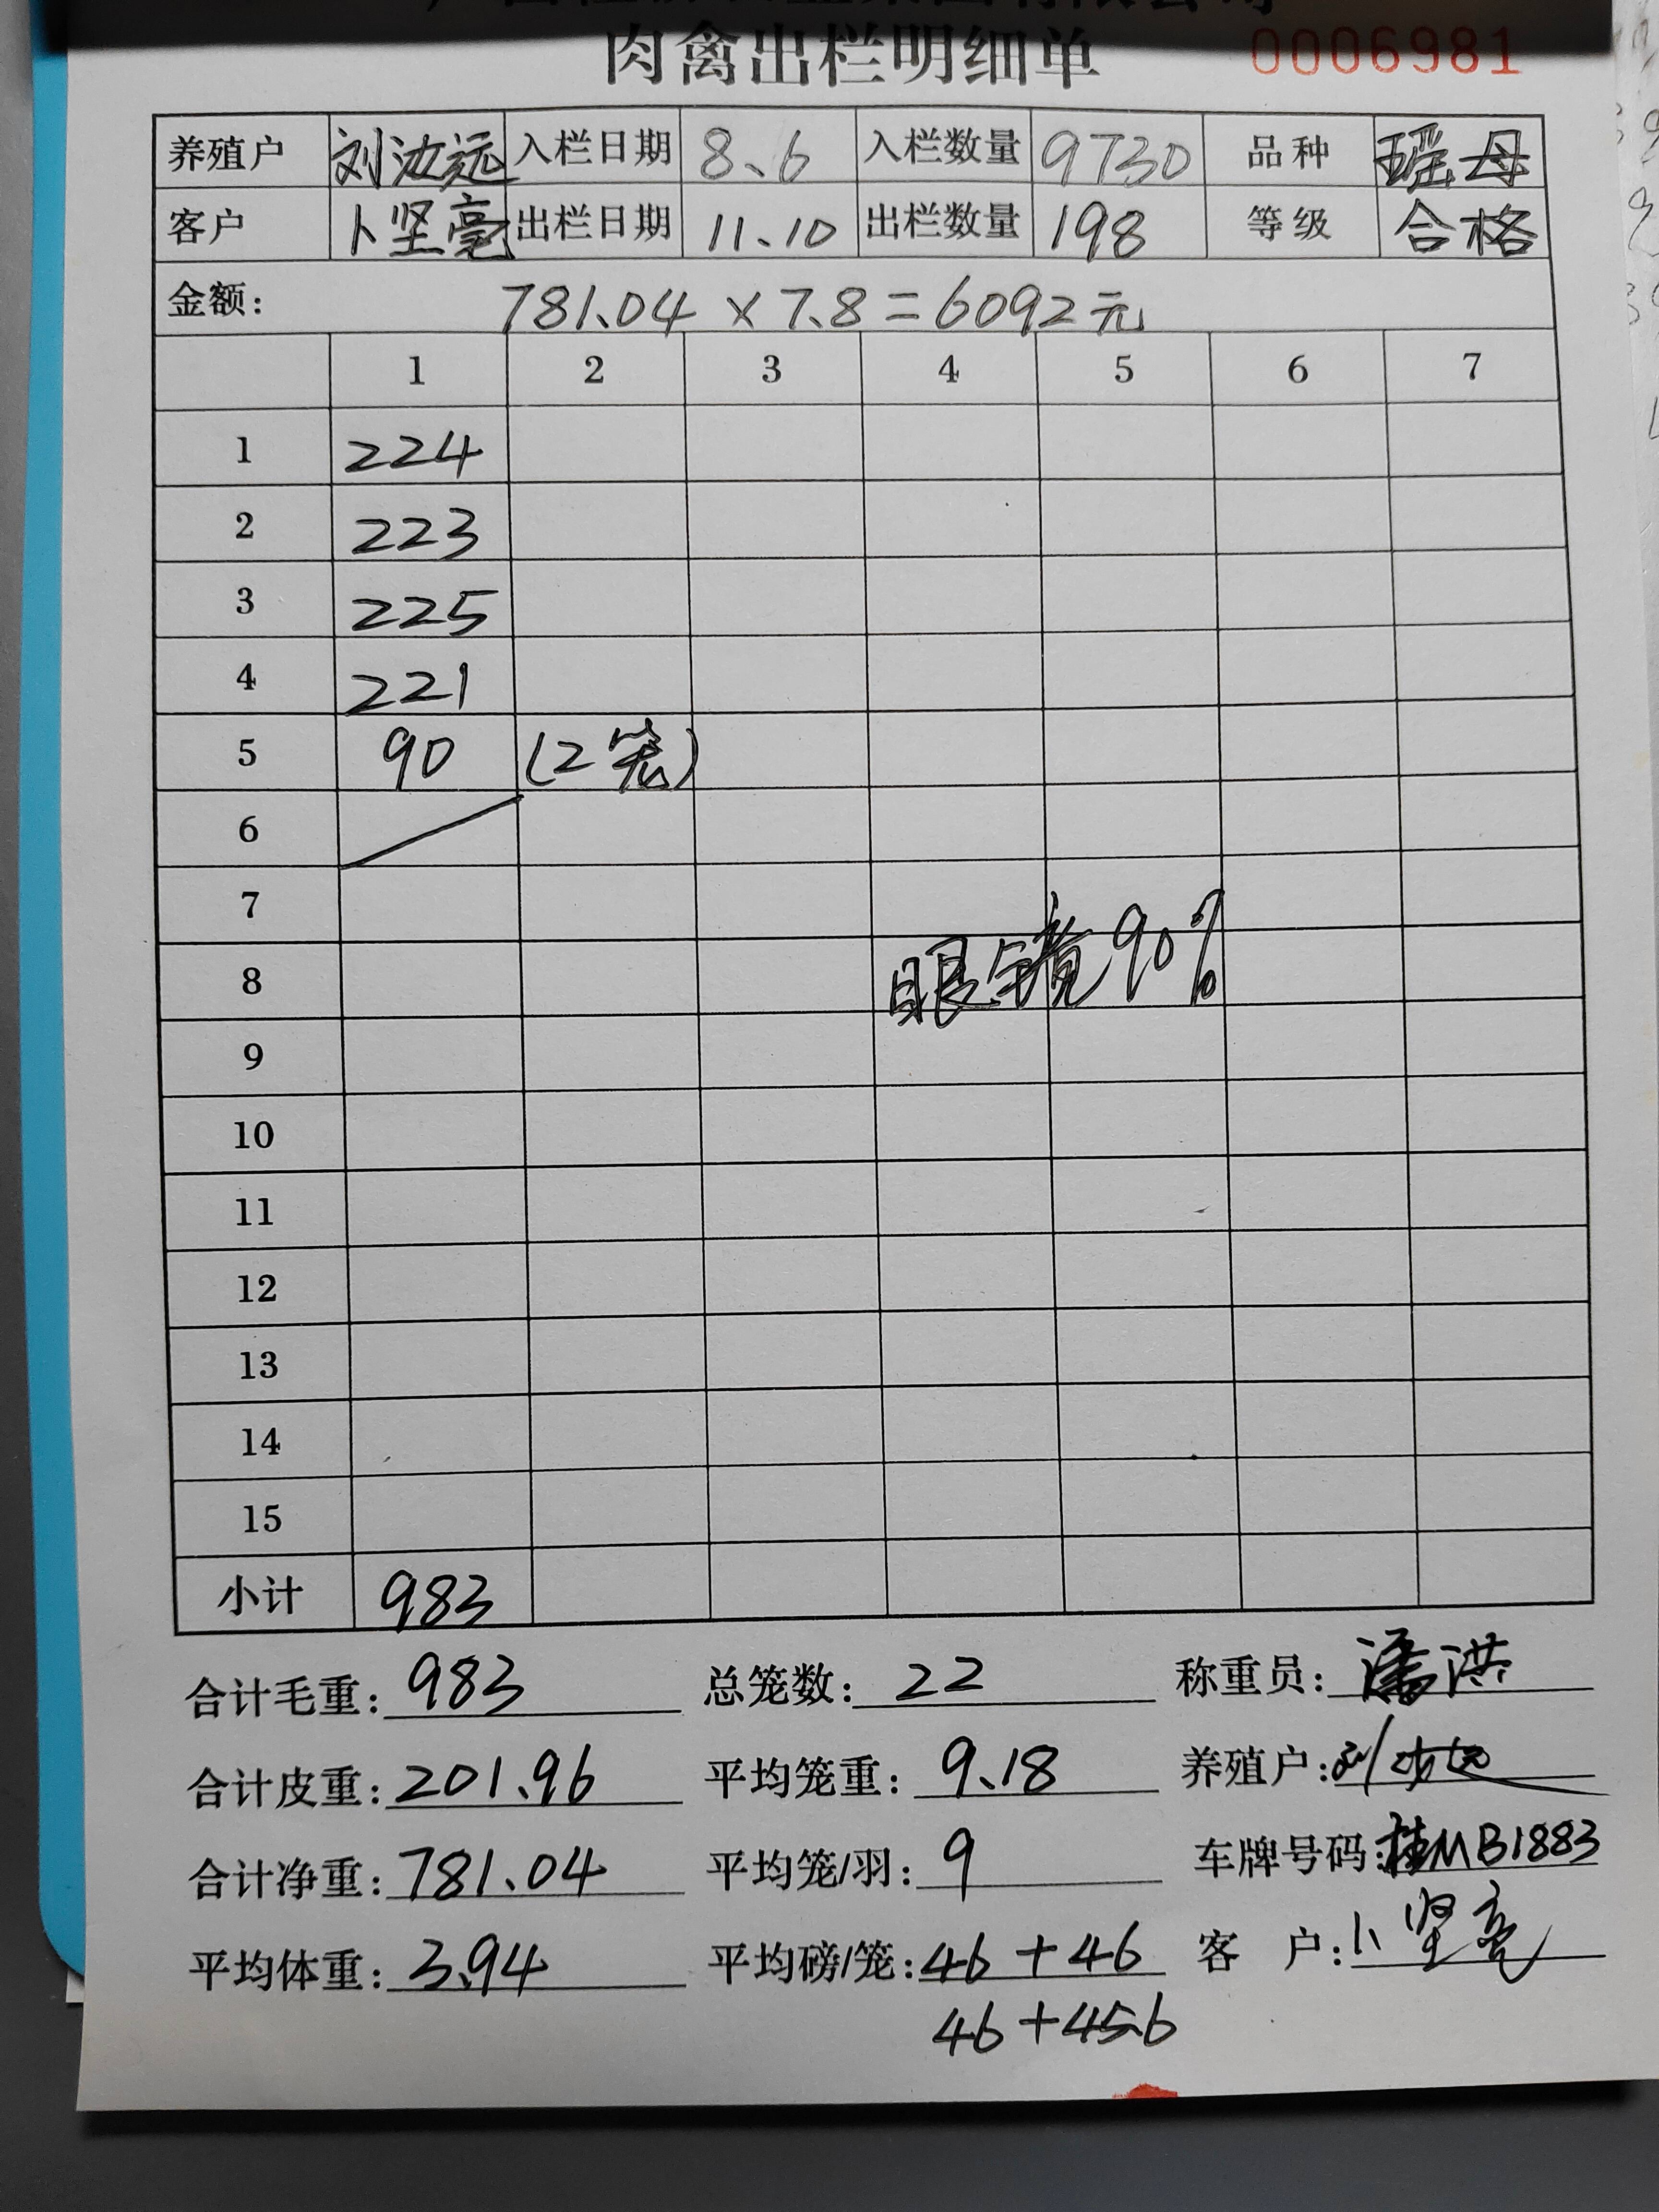 肉禽出栏明细单 0006981
养殖户 刘汝远 入栏日期 8.6 入栏数量 9730 品种 瑶母
客户 卜坚亮 出栏日期 11.10 出栏数量 198 等级 合格
金额: 781.04 × 7.8 = 6092元
1 2 3 4 5 6 7
1 224
2 223
3 225
4 221
5 90 (2笼)
6
7
8 眼镜90%
9
10
11
12
13
14
15
小计 983
合计毛重: 983 总笼数: 22 称重员: 潘洪
合计皮重: 201.96 平均笼重: 9.18 养殖户: 刘汝远
合计净重: 781.04 平均笼/羽: 9 车牌号码: 桂MB1883
平均体重: 3.94 平均磅/笼: 46 + 46 客 户: 卜坚亮
46 + 45.6